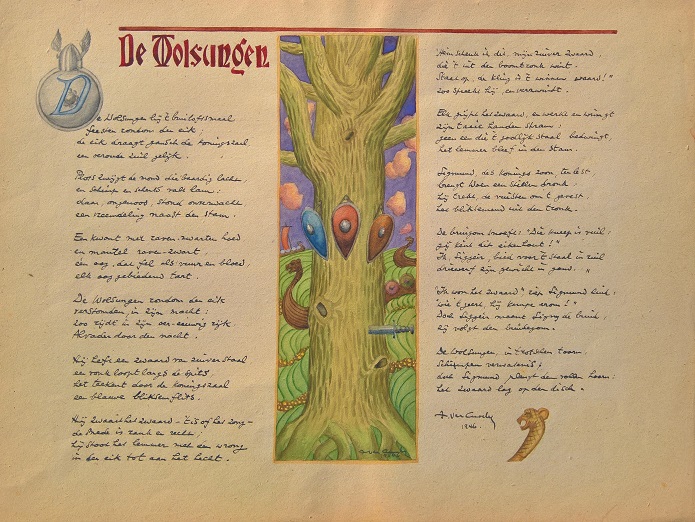 De Wolsungen
De Wolsungen bij 't bruiloftsmaal
feesten rondom den eik;
de eik draagt gansch de koningszaal
een vierde zuil gelijk.
Ploots zwijgt de mond die baardig lachte
en scheimp en scherts valt lam:
daar, ongenood, stond onverwacht
een vreemdeling naast den stam.
Een kwant met raven-zwarten hoed
en mantel raven-zwart,
één oog, dat fel als vuur en bloed,
elk oog gebiedend tart.
De Wolsungen rondom den eik
verstomden in zijn macht:
zoo rijdt in zijn oer-eeuwig rijk
Alvader door den nacht.
Hij heeft een zwaard van zuiver staal
een vonk loopt langs de spits,
het teekent door de koningszaal
een blauwe bliksemflits.
Hij zwaait het zwaard - 't is of het zong -
de snede is rank en recht;
hij stoot het lemmer met een wrong
in den eik tot aan het hecht.
"Hem schenk ik dit, mijn zuiver zwaard,
die 't uit den boomtronk wint -
Staat op, de kling is 't winnen waard!"
zoo spreekt hij, en verzwindt.
Elk grijpt het zwaard, en werkt en wringt
zijn taaie handen stram;
geen een die 't godlijk staal bedwingt,
het lemmer bleef in den stam.
Sigmund, des konings zoon, ten lest,
brengt Woen een stillen dronk;
hij trekt, de vuisten om 't gevest,
het bliksemend uit den tronk.
De bruigom snoefde: "Die knaap is veil;
gij kent dit eikenhout!"
Ik, Siggeir, bied voor 't staal in ruil
driewerf zijn gewicht in goud."
"Ik won het zwaard" riep Sigmund luid;
wie 't geert, hij kampe erom!"
Doch Siggeir neemt Signy de bruid;
hij volgt den bruidegom.
De Wolsungen, in trotschen toorn,
schimpen
doch Sigmund den vollen horen:
het zwaard lag op den disch.
1946.